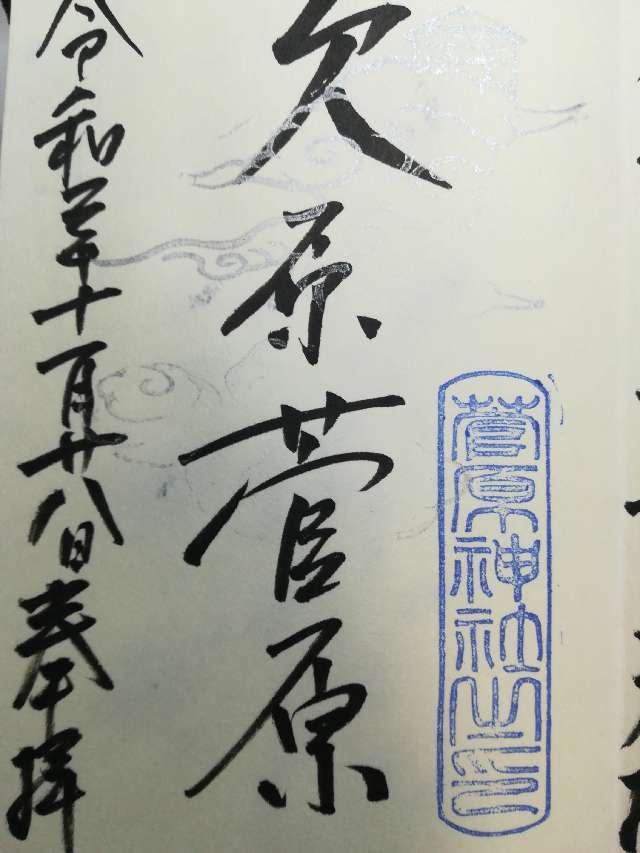 菅原神社之印
久原菅原
令和年十一月廿八日奉拝